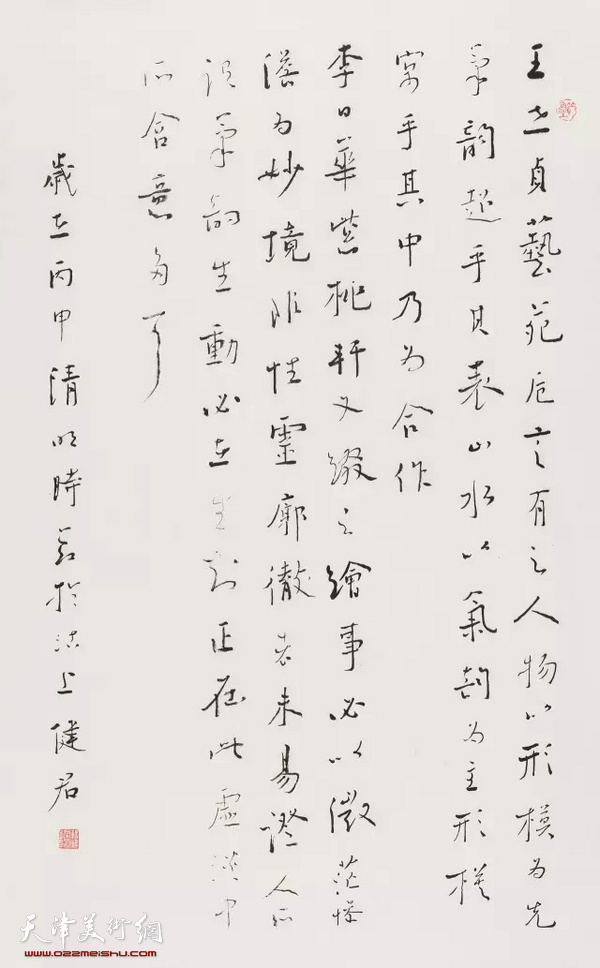 王世貞藝苑卮言有云人物以形模為先
氣韻超乎其表山水以氣韻為主形模
寓乎其中乃為合作
李日華紫桃軒又綴云繪事必以微茫慘
澹為妙境非性靈廓徹者未易證入所
謂氣韻生動必在生知正在此虛澹中
所含意多耳
歲在丙申清明時於沽上健君
天津美術網
www.022meishu.com